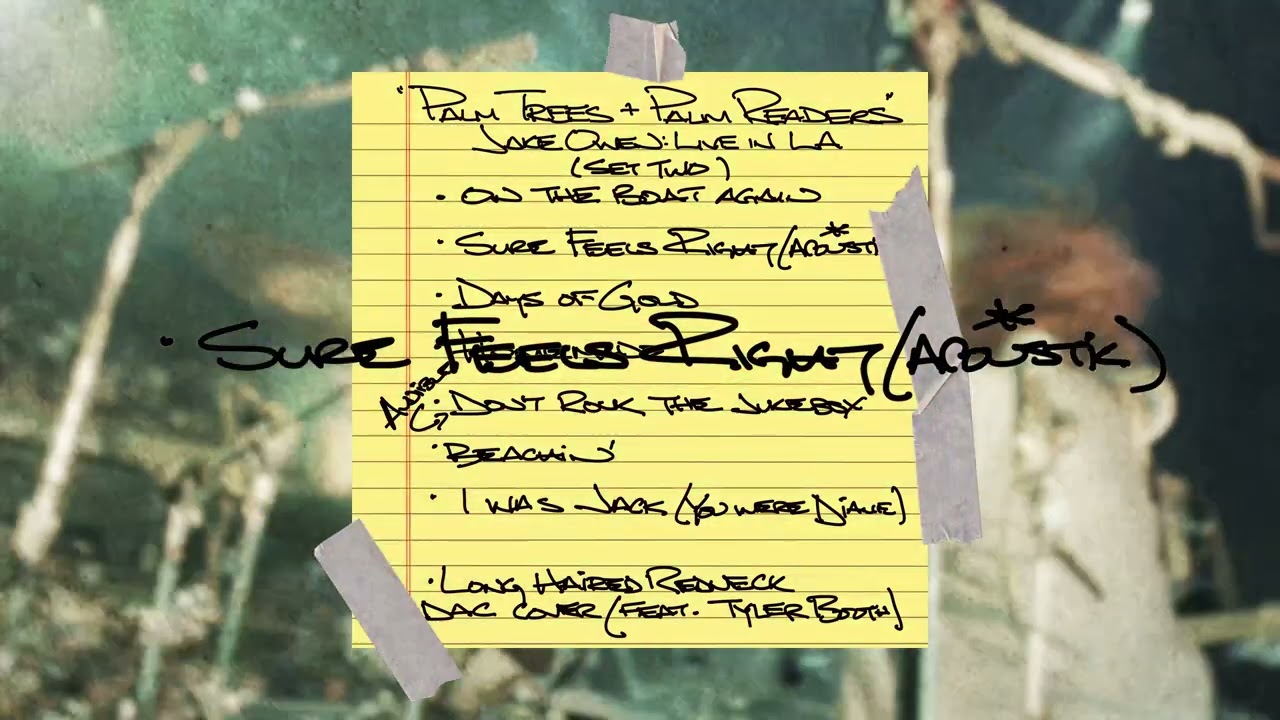 "PALM TREES + PALM READERS"
JAKE OWEN: LIVE IN LA
(SET TWO)
• ON THE BOAT AGAIN
• SURE FEELS RIGHT (ACOUSTI
*
• DAYS OF GOLD
• SURE FEELS RIGHT (ACOUSTIK)
*
AUDIBLE
• DON'T ROCK THE JUKEBOX
• BEACHIN'
• I WAS JACK (YOU WERE DIANE)
• LONG HAIRED REDNECK
DAC COVER (FEAT. TYLER BOOTH)